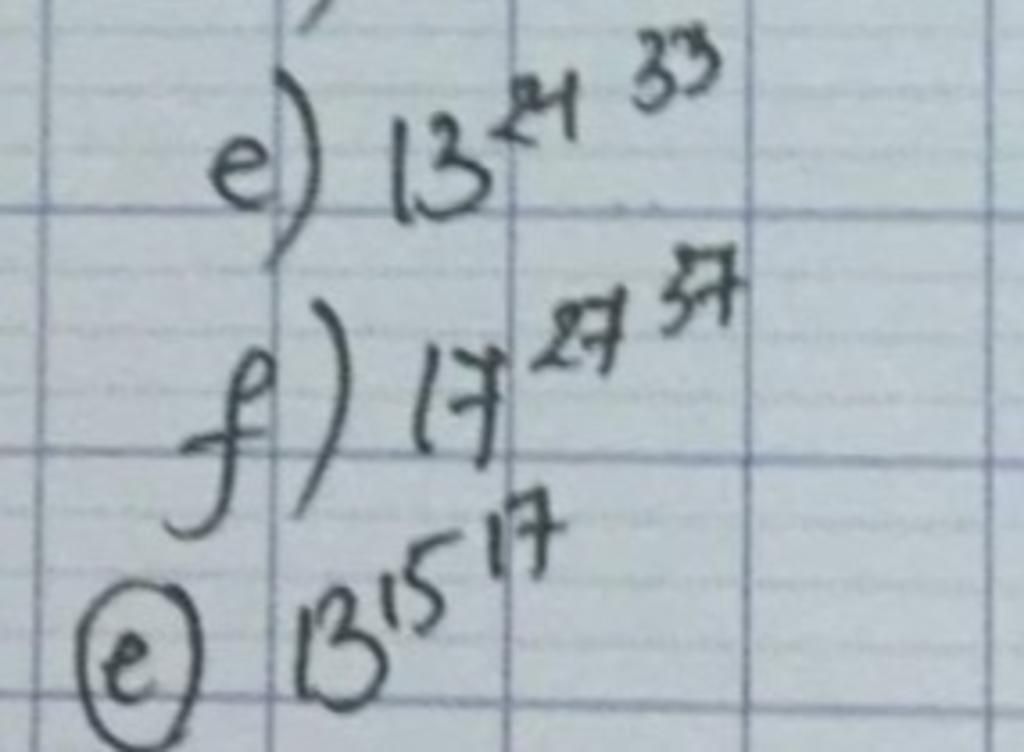 e) 13^24^33
f) 17^27^37
e 13^15^17